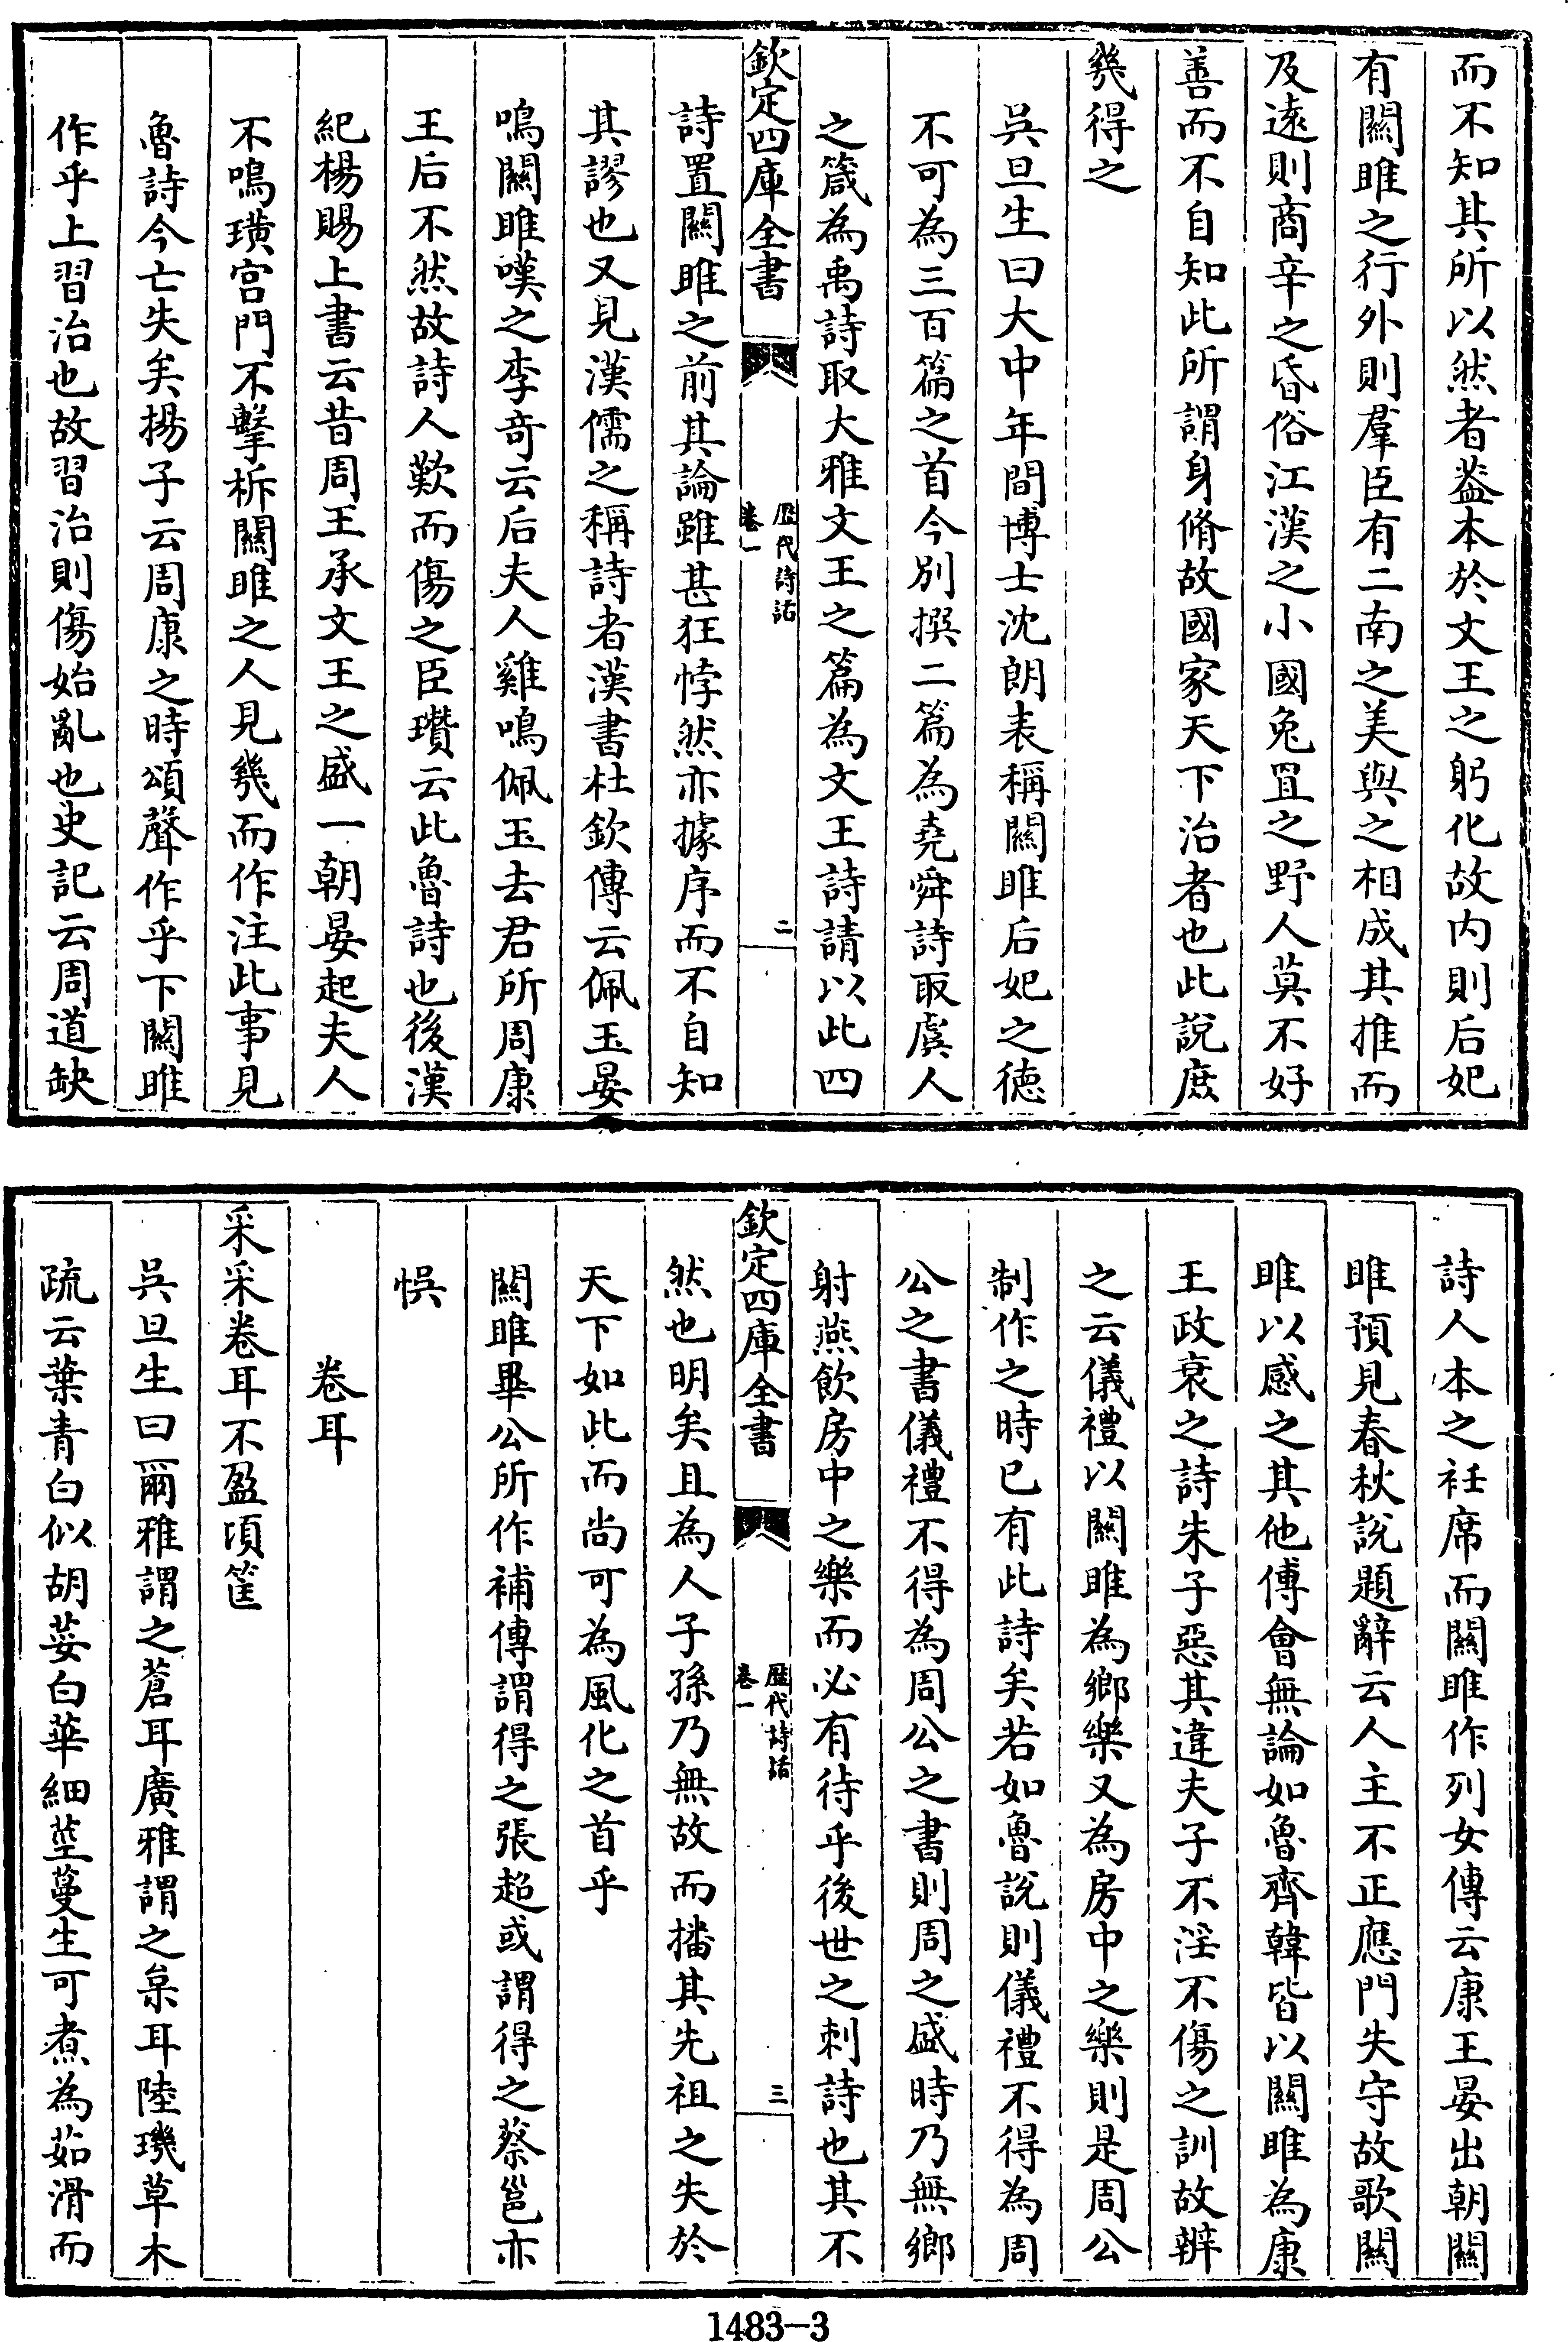 而不知其所以然者葢本於文王之躬化故内則后妃
有關雎之行外則羣臣有二南之美與之相成其推而
及遠則商辛之昏俗江漢之小國兔罝之野人莫不好
善而不自知此所謂身脩故國家天下治者也此說庶
幾得之
吳旦生曰大中年間博士沈朗表稱關雎后妃之徳
不可為三百篇之首今別撰二篇為堯舜詩取虞人
之箴為禹詩取大雅文王之篇為文王詩請以此四
欽定四庫全書
歴代詩話
卷一
二
詩置關雎之前其論雖甚狂悖然亦據序而不自知
其謬也又見漢儒之稱詩者漢書杜欽傳云佩玉晏
鳴關雎嘆之李竒云后夫人雞鳴佩玉去君所周康
王后不然故詩人歎而傷之臣瓚云此魯詩也後漢
紀楊賜上書云昔周王承文王之盛一朝晏起夫人
不鳴璜宫門不擊柝關雎之人見幾而作注此事見
魯詩今亡失矣揚子云周康之時頌聲作乎下關雎
作乎上習治也故習治則傷始亂也史記云周道缺
詩人本之衽席而關雎作列女傳云康王晏出朝關
雎預見春秋說題辭云人主不正應門失守故歌關
雎以感之其他傅會無論如魯齊韓皆以關雎為康
王政衰之詩朱子惡其違夫子不淫不傷之訓故辨
之云儀禮以關雎為鄉樂又為房中之樂則是周公
制作之時已有此詩矣若如魯說則儀禮不得為周
公之書儀禮不得為周公之書則周之盛時乃無鄉
射燕飲房中之樂而必有待乎後世之刺詩也其不
欽定四庫全書
歴代詩話
卷一
三
然也明矣且為人子孫乃無故而播其先祖之失於
天下如此而尚可為風化之首乎
關雎畢公所作補傳謂得之張超或謂得之蔡邕亦
悞
卷耳
采采卷耳不盈頃筐
吳旦生曰爾雅謂之蒼耳廣雅謂之枲耳陸璣草木
疏云葉青白似胡荽白華細莖蔓生可煮為茹滑而
1483-3